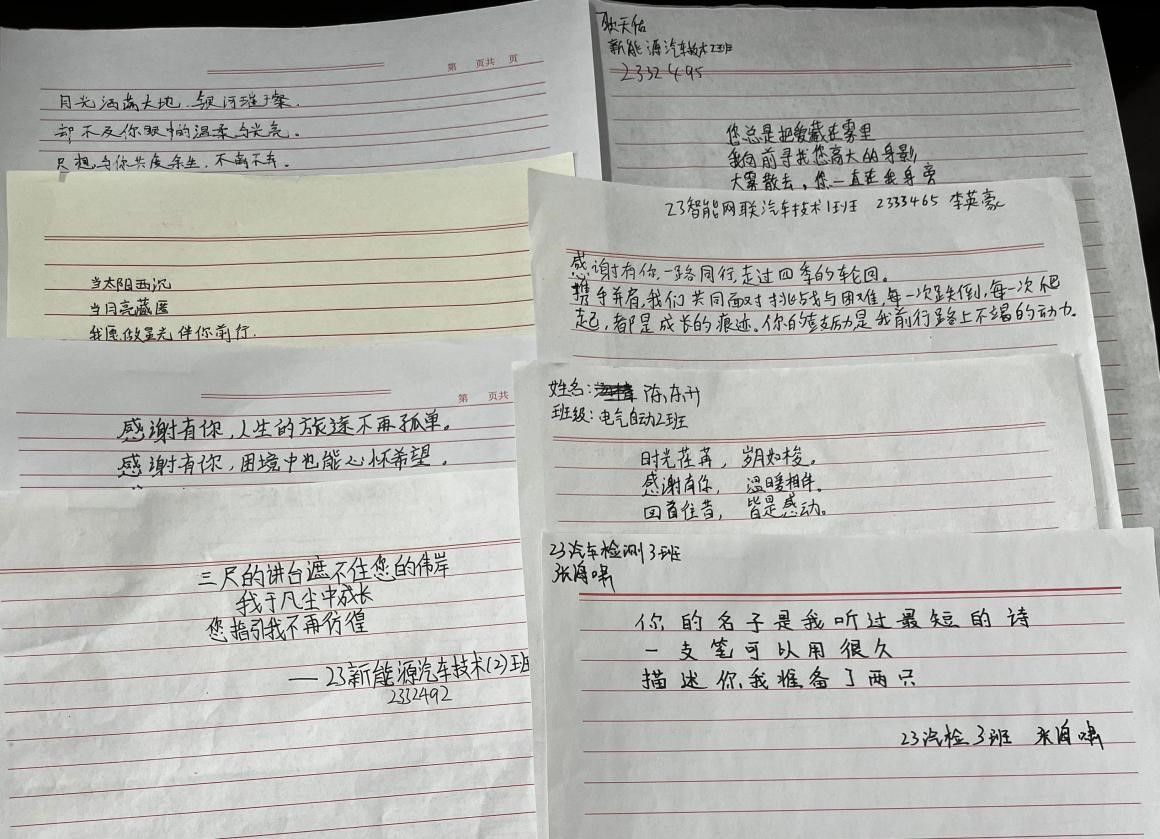 第 页共 页
月光洒满大地,银河璀璨,
却不及你眼中的温柔与光亮。
只想与你共度余生,不离不弃。
当太阳西沉
当月亮藏匿
我愿做星光伴你前行.
第 页共
感谢有你,人生的旅途不再孤单。
感谢有你,困境中也能心怀希望。
三尺的讲台遮不住您的伟岸
我于凡尘中成长
您指引我不再彷徨
——23新能源汽车技术(2)班
2332492
天佑
新能源汽车技术2班
2332495
您总是把爱藏在雾里
我向前寻找您高大的身影
大雾散去,您一直在我身旁
23智能网联汽车技术1班 2333465 李英豪
感谢有你,一路同行,走过四季的轮回。
携手并肩,我们共同面对挑战与困难,每一次跌倒,每一次爬
起,都是成长的痕迹。你的支持是我前行路上不竭的动力。
姓名: 陈东升
班级:电气自动2班
时光荏苒,岁月如梭。
感谢有你,温暖相伴。
回首往昔,皆是感动。
23汽车检测3班
张海啸
你的名子是我听过最短的诗
一支笔可以用很久
描述你我准备了两只
23汽检3班 张海啸